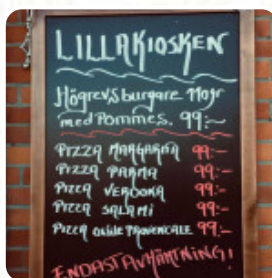 LILLAKIOSKEN
Högrevsburgare 110gr
med Pommes. 99:-
PIZZA MARGARITA 99:-
PIZZA PARMA 99:-
PIZZA VERDURA 99:-
PIZZA SALAMI 99:-
PIZZA PROVENCALE 99:-
ENDAST AVHÄMTNING!